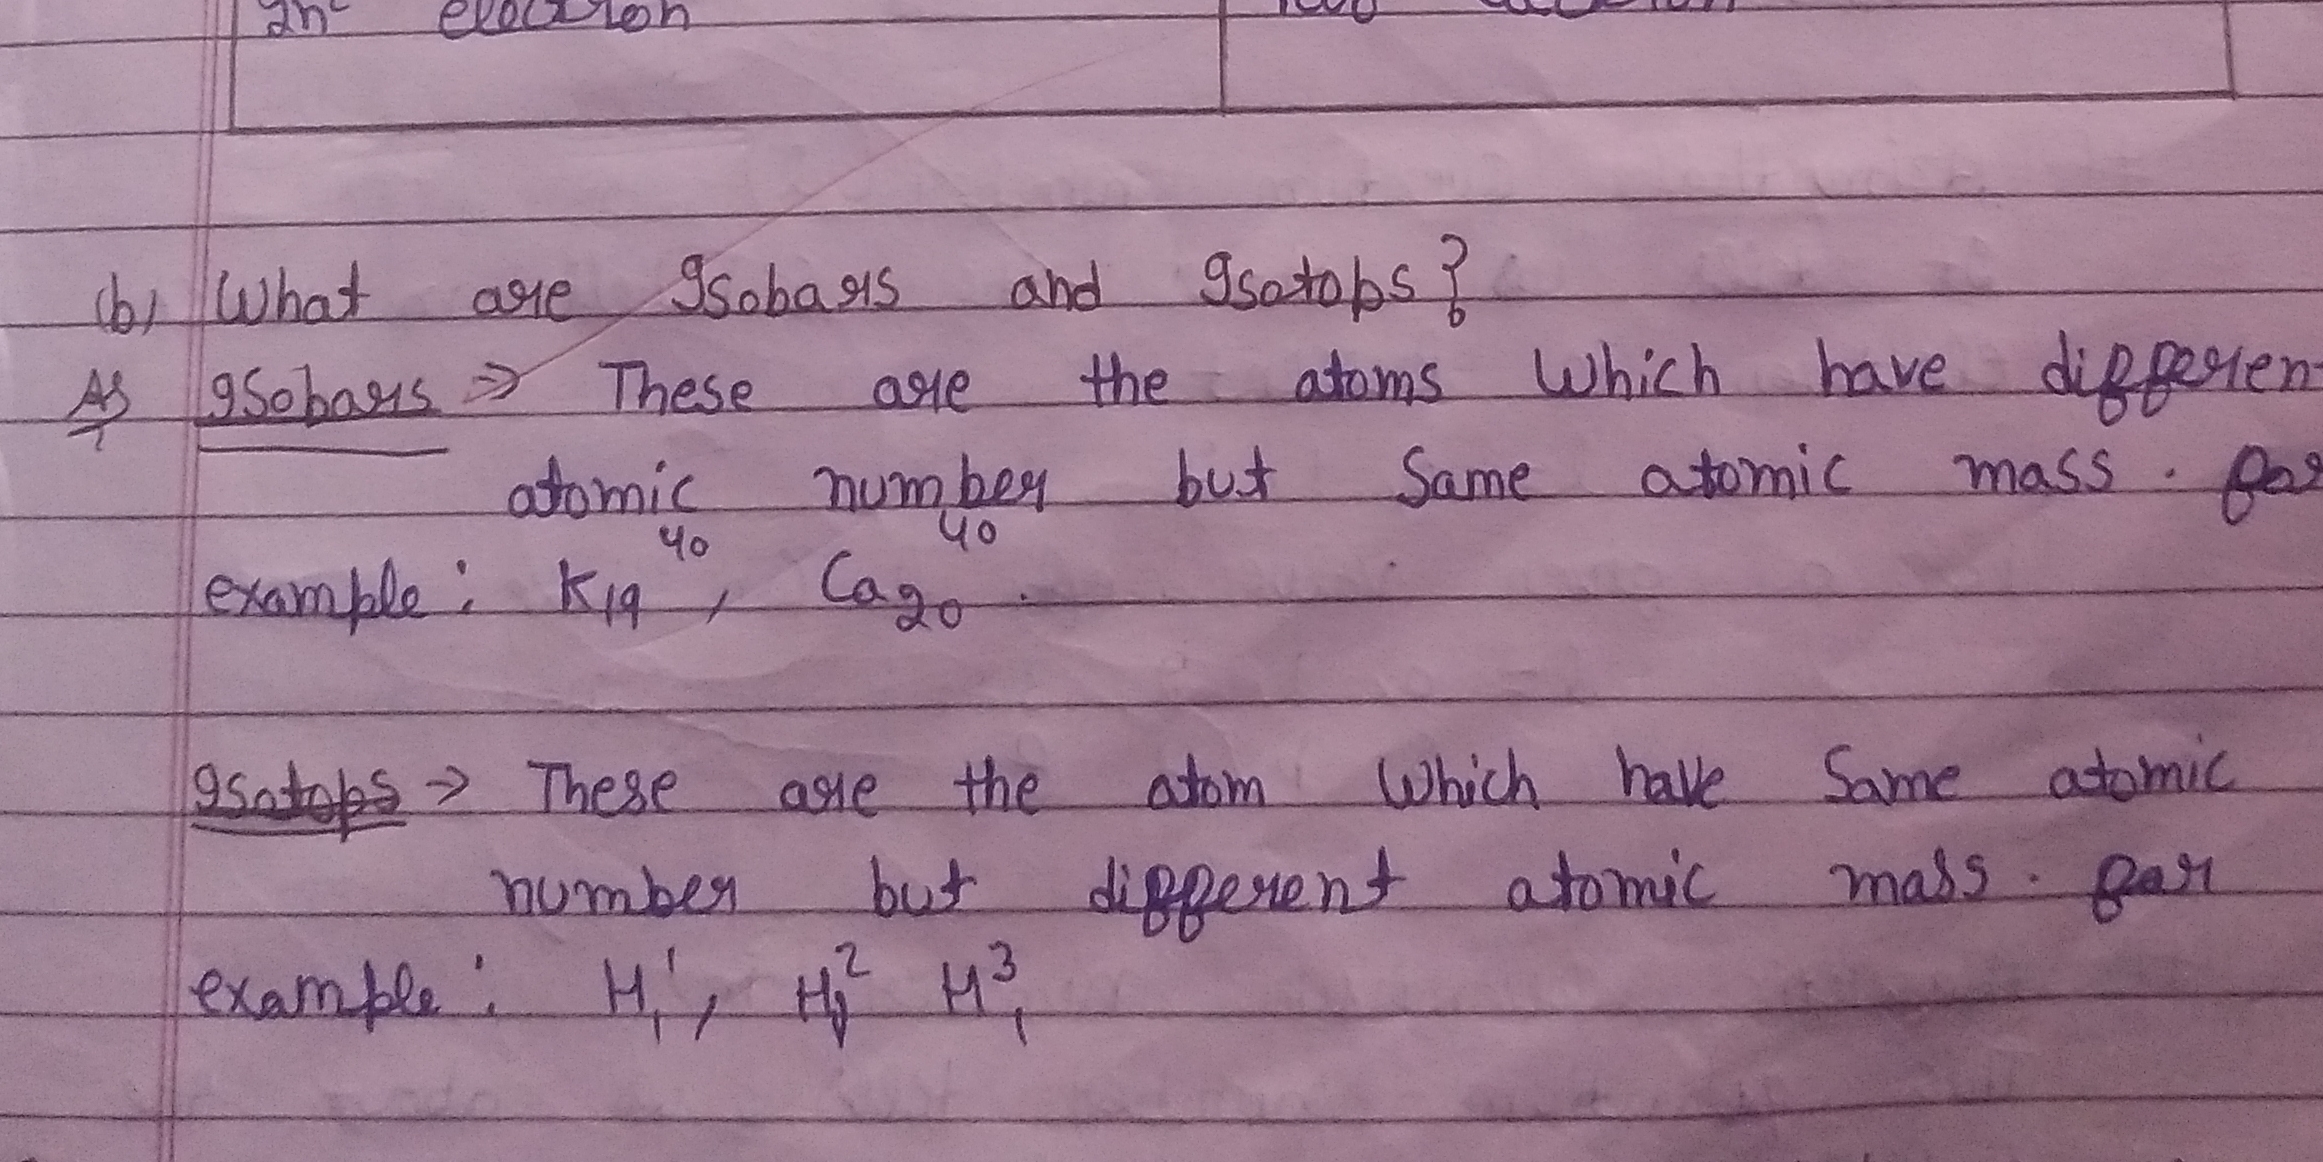 2n² electron
(b) What are Isobars and Isotops?
As Isobars ⇒ These are the atoms which have differen
atomic number but Same atomic mass. for
example : K₁₉⁴⁰, Ca₂₀⁴⁰.
Isotops → These are the atom which have Same atomic
number but different atomic mass. for
example : H₁¹, H₁² H₁³